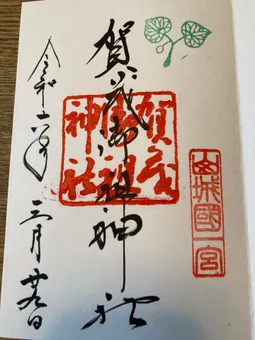 山城國一宮
賀茂御祖神社
賀茂
御祖
神社
令和六年三月廿九日